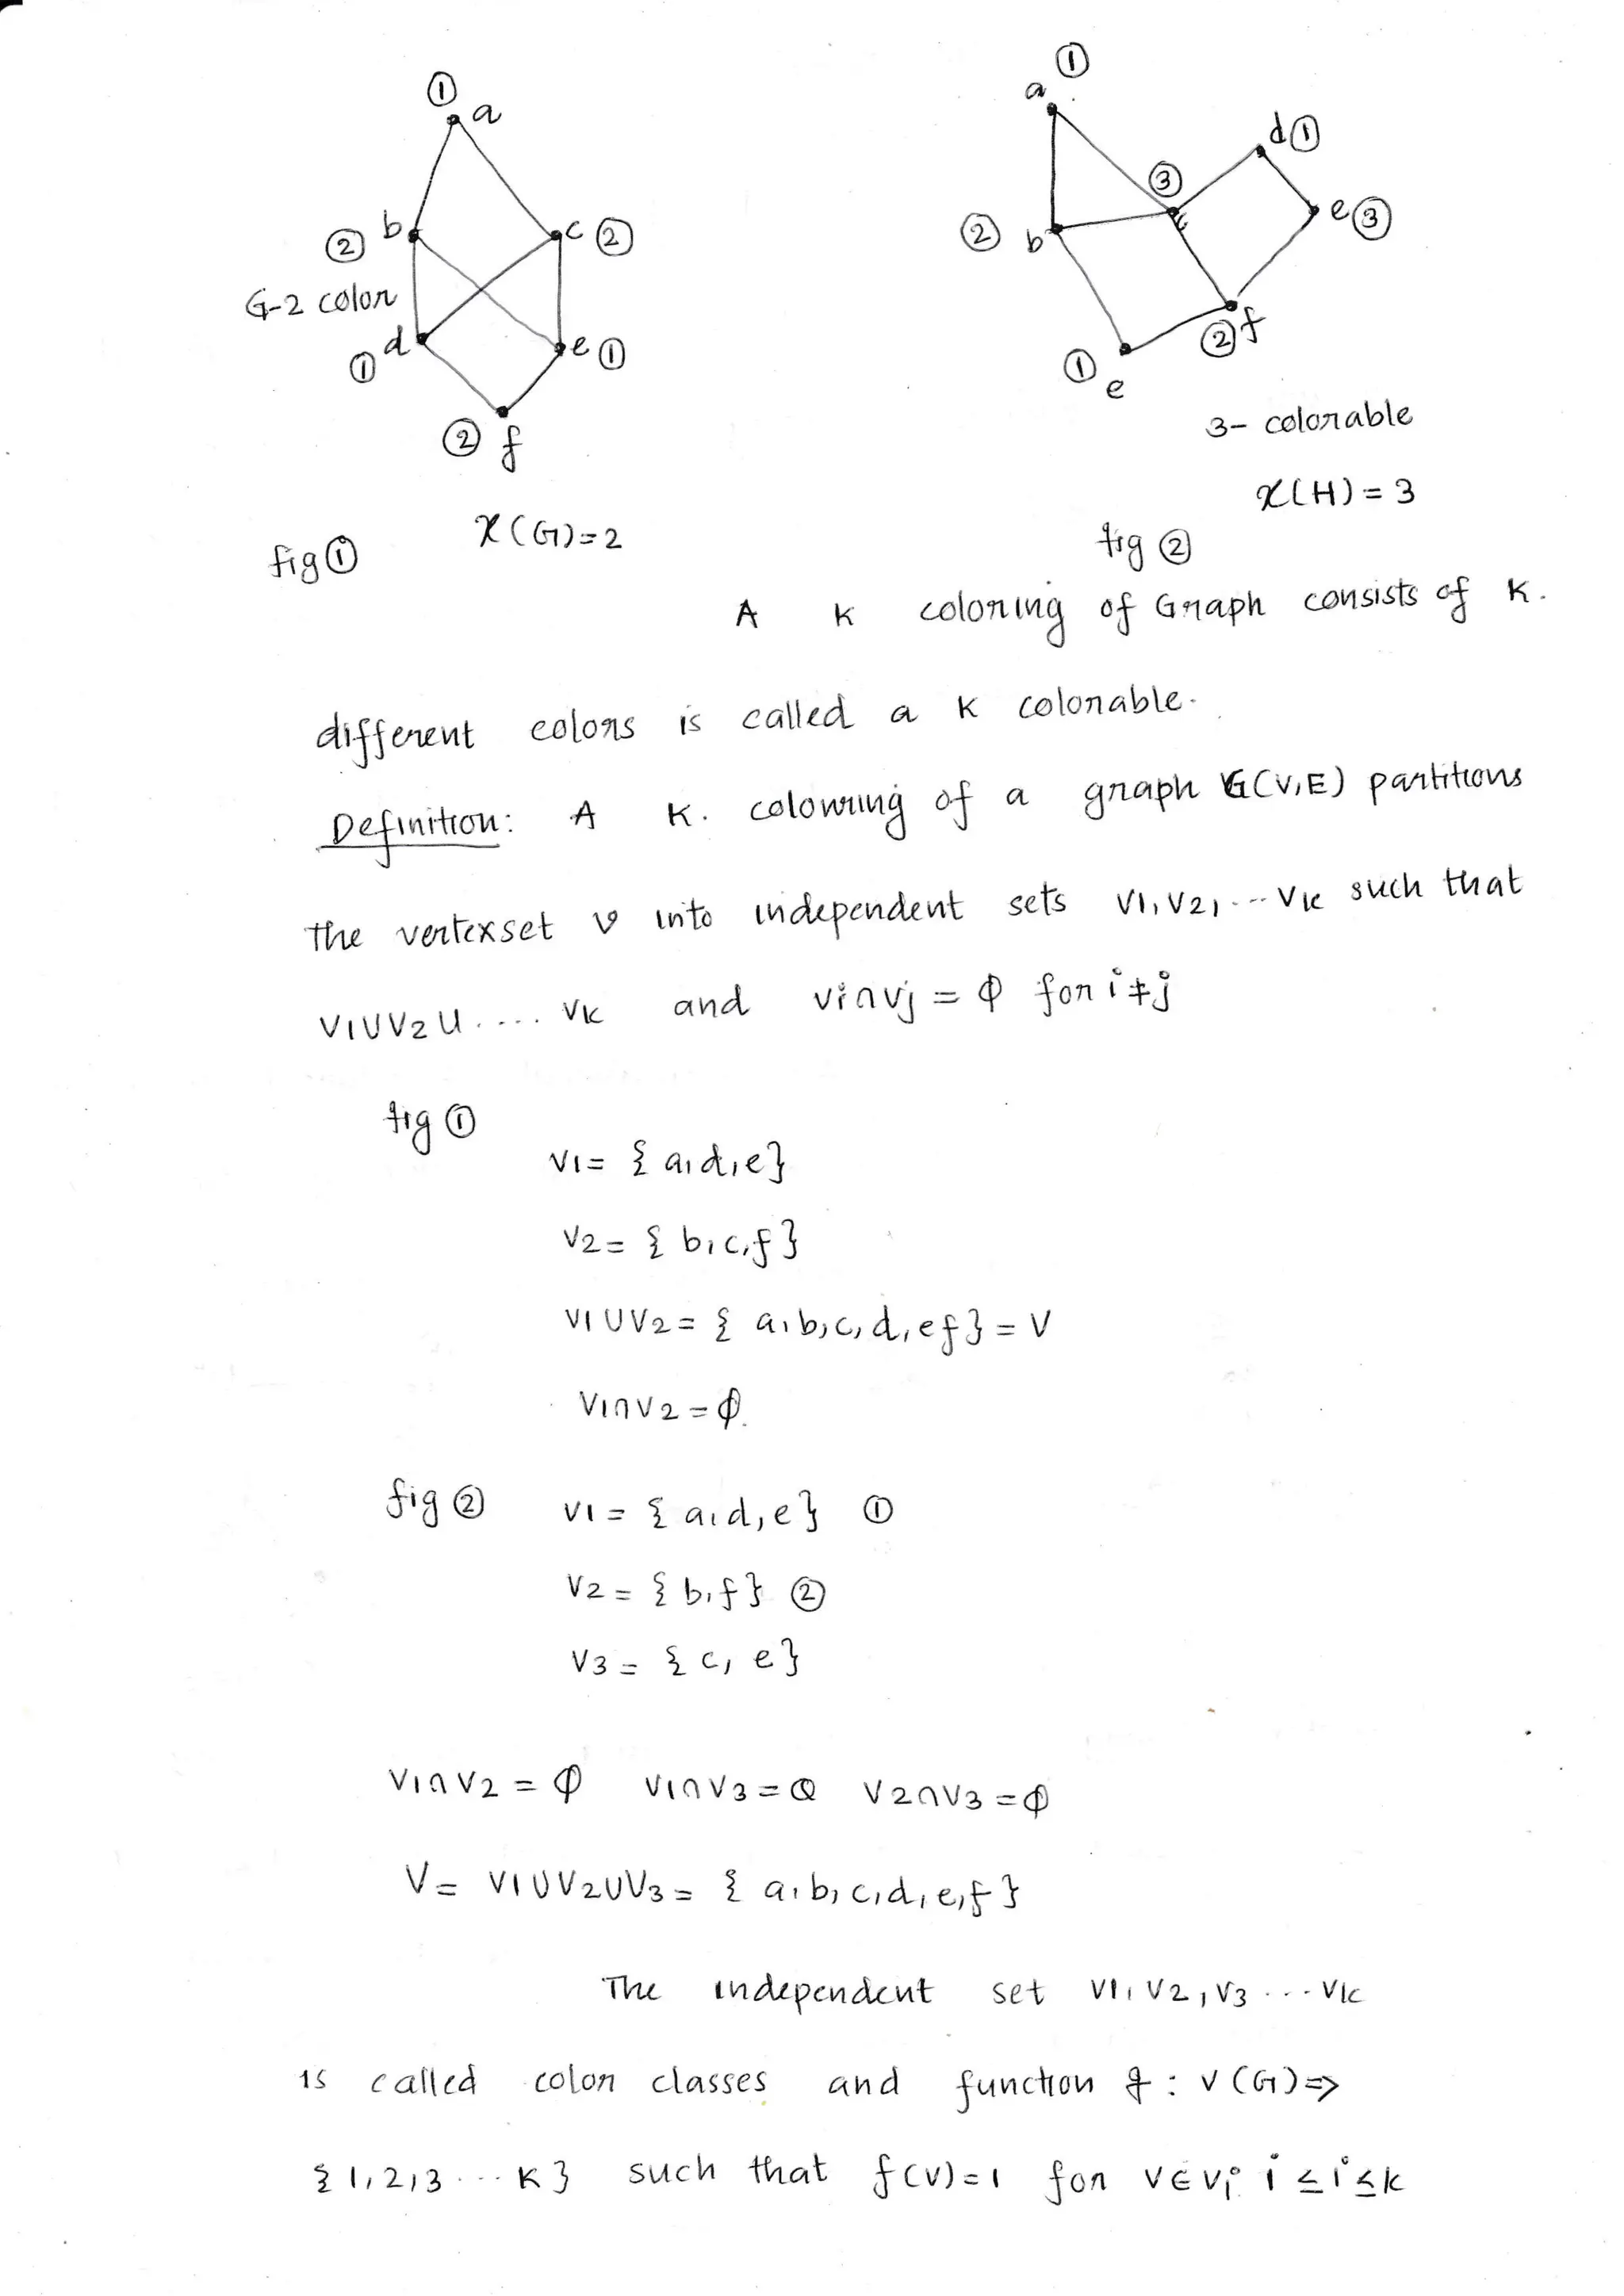 ① a
b ② c ②
G-2 color
d ① e ①
② f
χ(G)=2
fig ①
① a
d ①
③ c
② b
e ③
② f
① e
3- colorable
χ(H) = 3
fig ②
A K coloring of Graph consists of K.
different colors is called a K colorable.
Definition: A K. colouring of a graph G(V,E) partitions
the vertexset v into independent sets V1, V2, ... Vk such that
V1UV2U.... Vk and Vi∩Vj = Φ for i≠j
fig ①
V1= { a,d,e}
V2= { b,c,f }
V1UV2= { a,b,c,d,e f } = V
V1∩V2 = Φ.
fig ② V1 = { a,d,e} ①
V2 = { b,f } ②
V3 = { c, e}
V1∩V2 = Φ V1∩V3 = Φ V2∩V3 = Φ
V= V1UV2UV3 = { a,b,c,d,e,f }
The independent set V1, V2, V3 ... Vk
is called color classes and function f : V(G)=>
{ 1,2,3 ... K } such that f(v)=1 for v∈Vi i ≤ i ≤ k